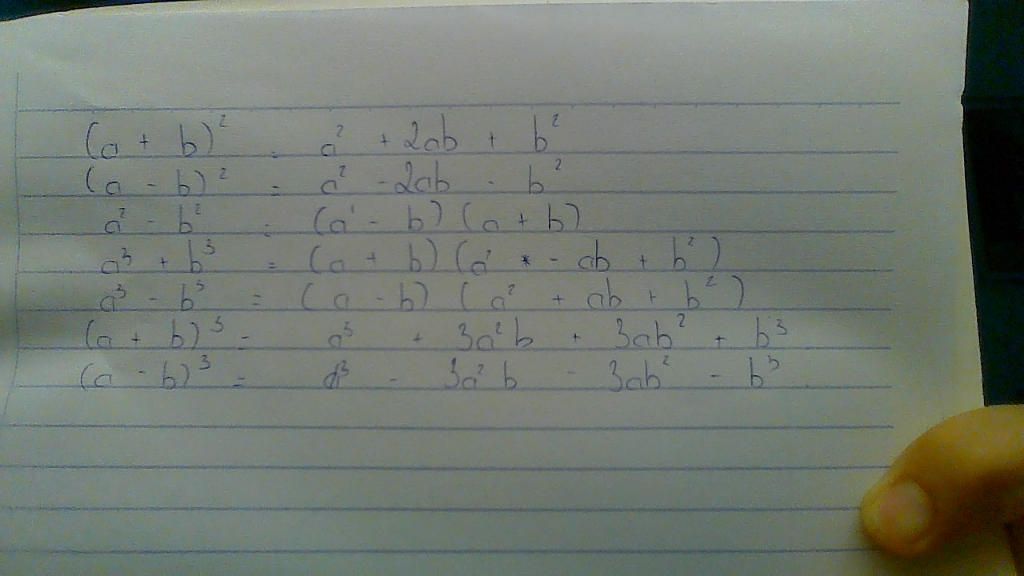 (a + b)² = a² + 2ab + b²
(a - b)² = a² - 2ab - b²
a² - b² = (a - b) (a + b)
a³ + b³ = (a + b) (a² - ab + b²)
a³ - b³ = (a - b) (a² + ab + b²)
(a + b)³ = a³ + 3a²b + 3ab² + b³
(a - b)³ = a³ - 3a²b - 3ab² - b³